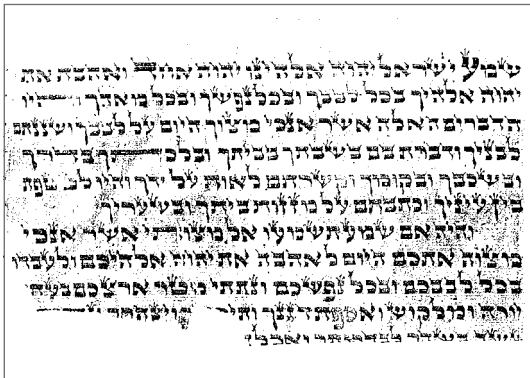 שמע ישראל יהוה אלהינו יהוה אחד ואהבת את
יהוה אלהיך בכל לבבך ובכל נפשך ובכל מאדך והיו
הדברים האלה אשר אנכי מצוך היום על לבבך ושננתם
לבניך ודברת בם בשבתך בביתך ובלכתך בדרך
ובשכבך ובקומך וקשרתם לאות על ידך והיו לטטפת
בין עיניך וכתבתם על מזוזות ביתך ובשעריך
והיה אם שמע תשמעו אל מצותי אשר אנכי
מצוה אתכם היום לאהבה את יהוה אלהיכם ולעבדו
בכל לבבכם ובכל נפשכם ונתתי מטר ארצכם בעתו
יורה ומלקוש ואספת דגנך ויצהרך
עשב בשדך לבהמתך ואכלת